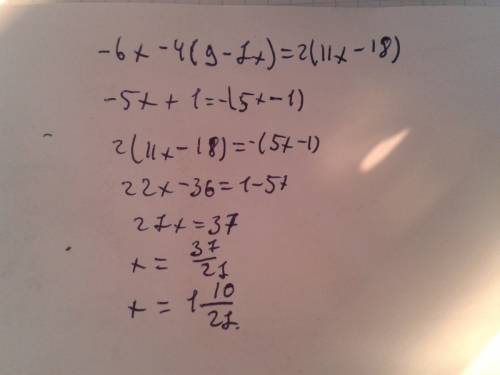 -6x -4(9-7x)=2(11x-18)
-5x+1=-(5x-1)
2(11x-18)=-(5x-1)
22x-36=1-5x
27x=37
x = 37/27
x = 1 10/27.